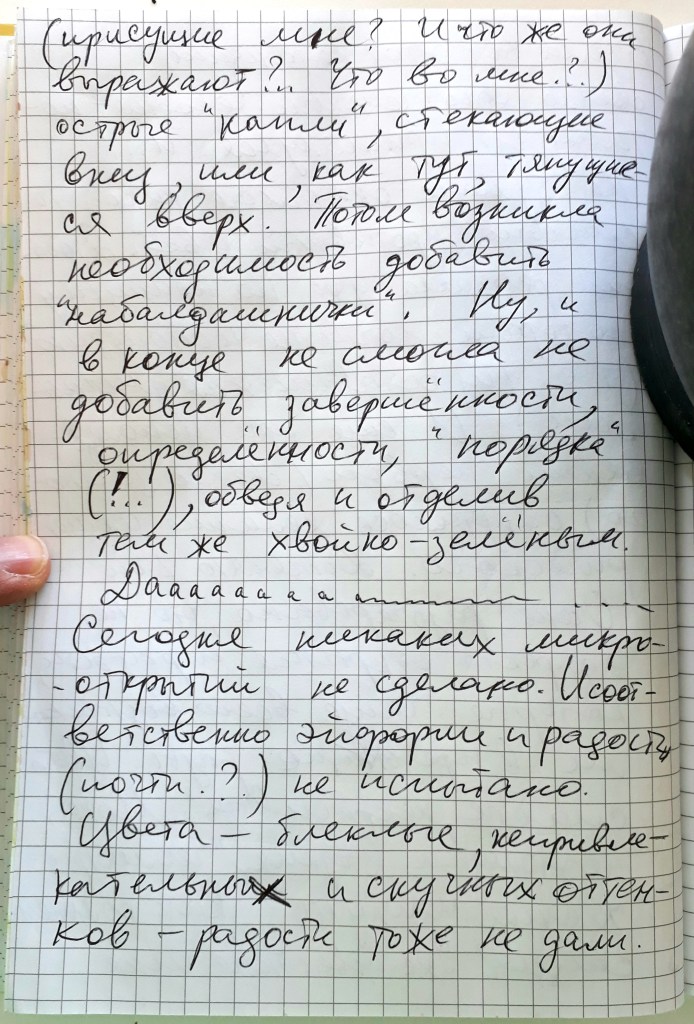 (присущие мне? И что же они
выражают?.. Что во мне.?.)
острые "капли", стекающие
вниз, или, как тут, тянущие-
ся вверх. Потом возникла
необходимость добавить
"набалдашнички". Ну, и
в конце не смогла не
добавить завершённости,
определённости, "порядка"
(!...), обведя и отделив
тем же хвойно-зелёным.
Даааааааа ....
Сегодня никаких микро-
-открытий не сделано. И соот-
ветственно эйфории и радости
(почти.?.) не испытано.
Цвета – блеклые, непривле-
кательных и скучных оттен-
ков – радости тоже не дали.